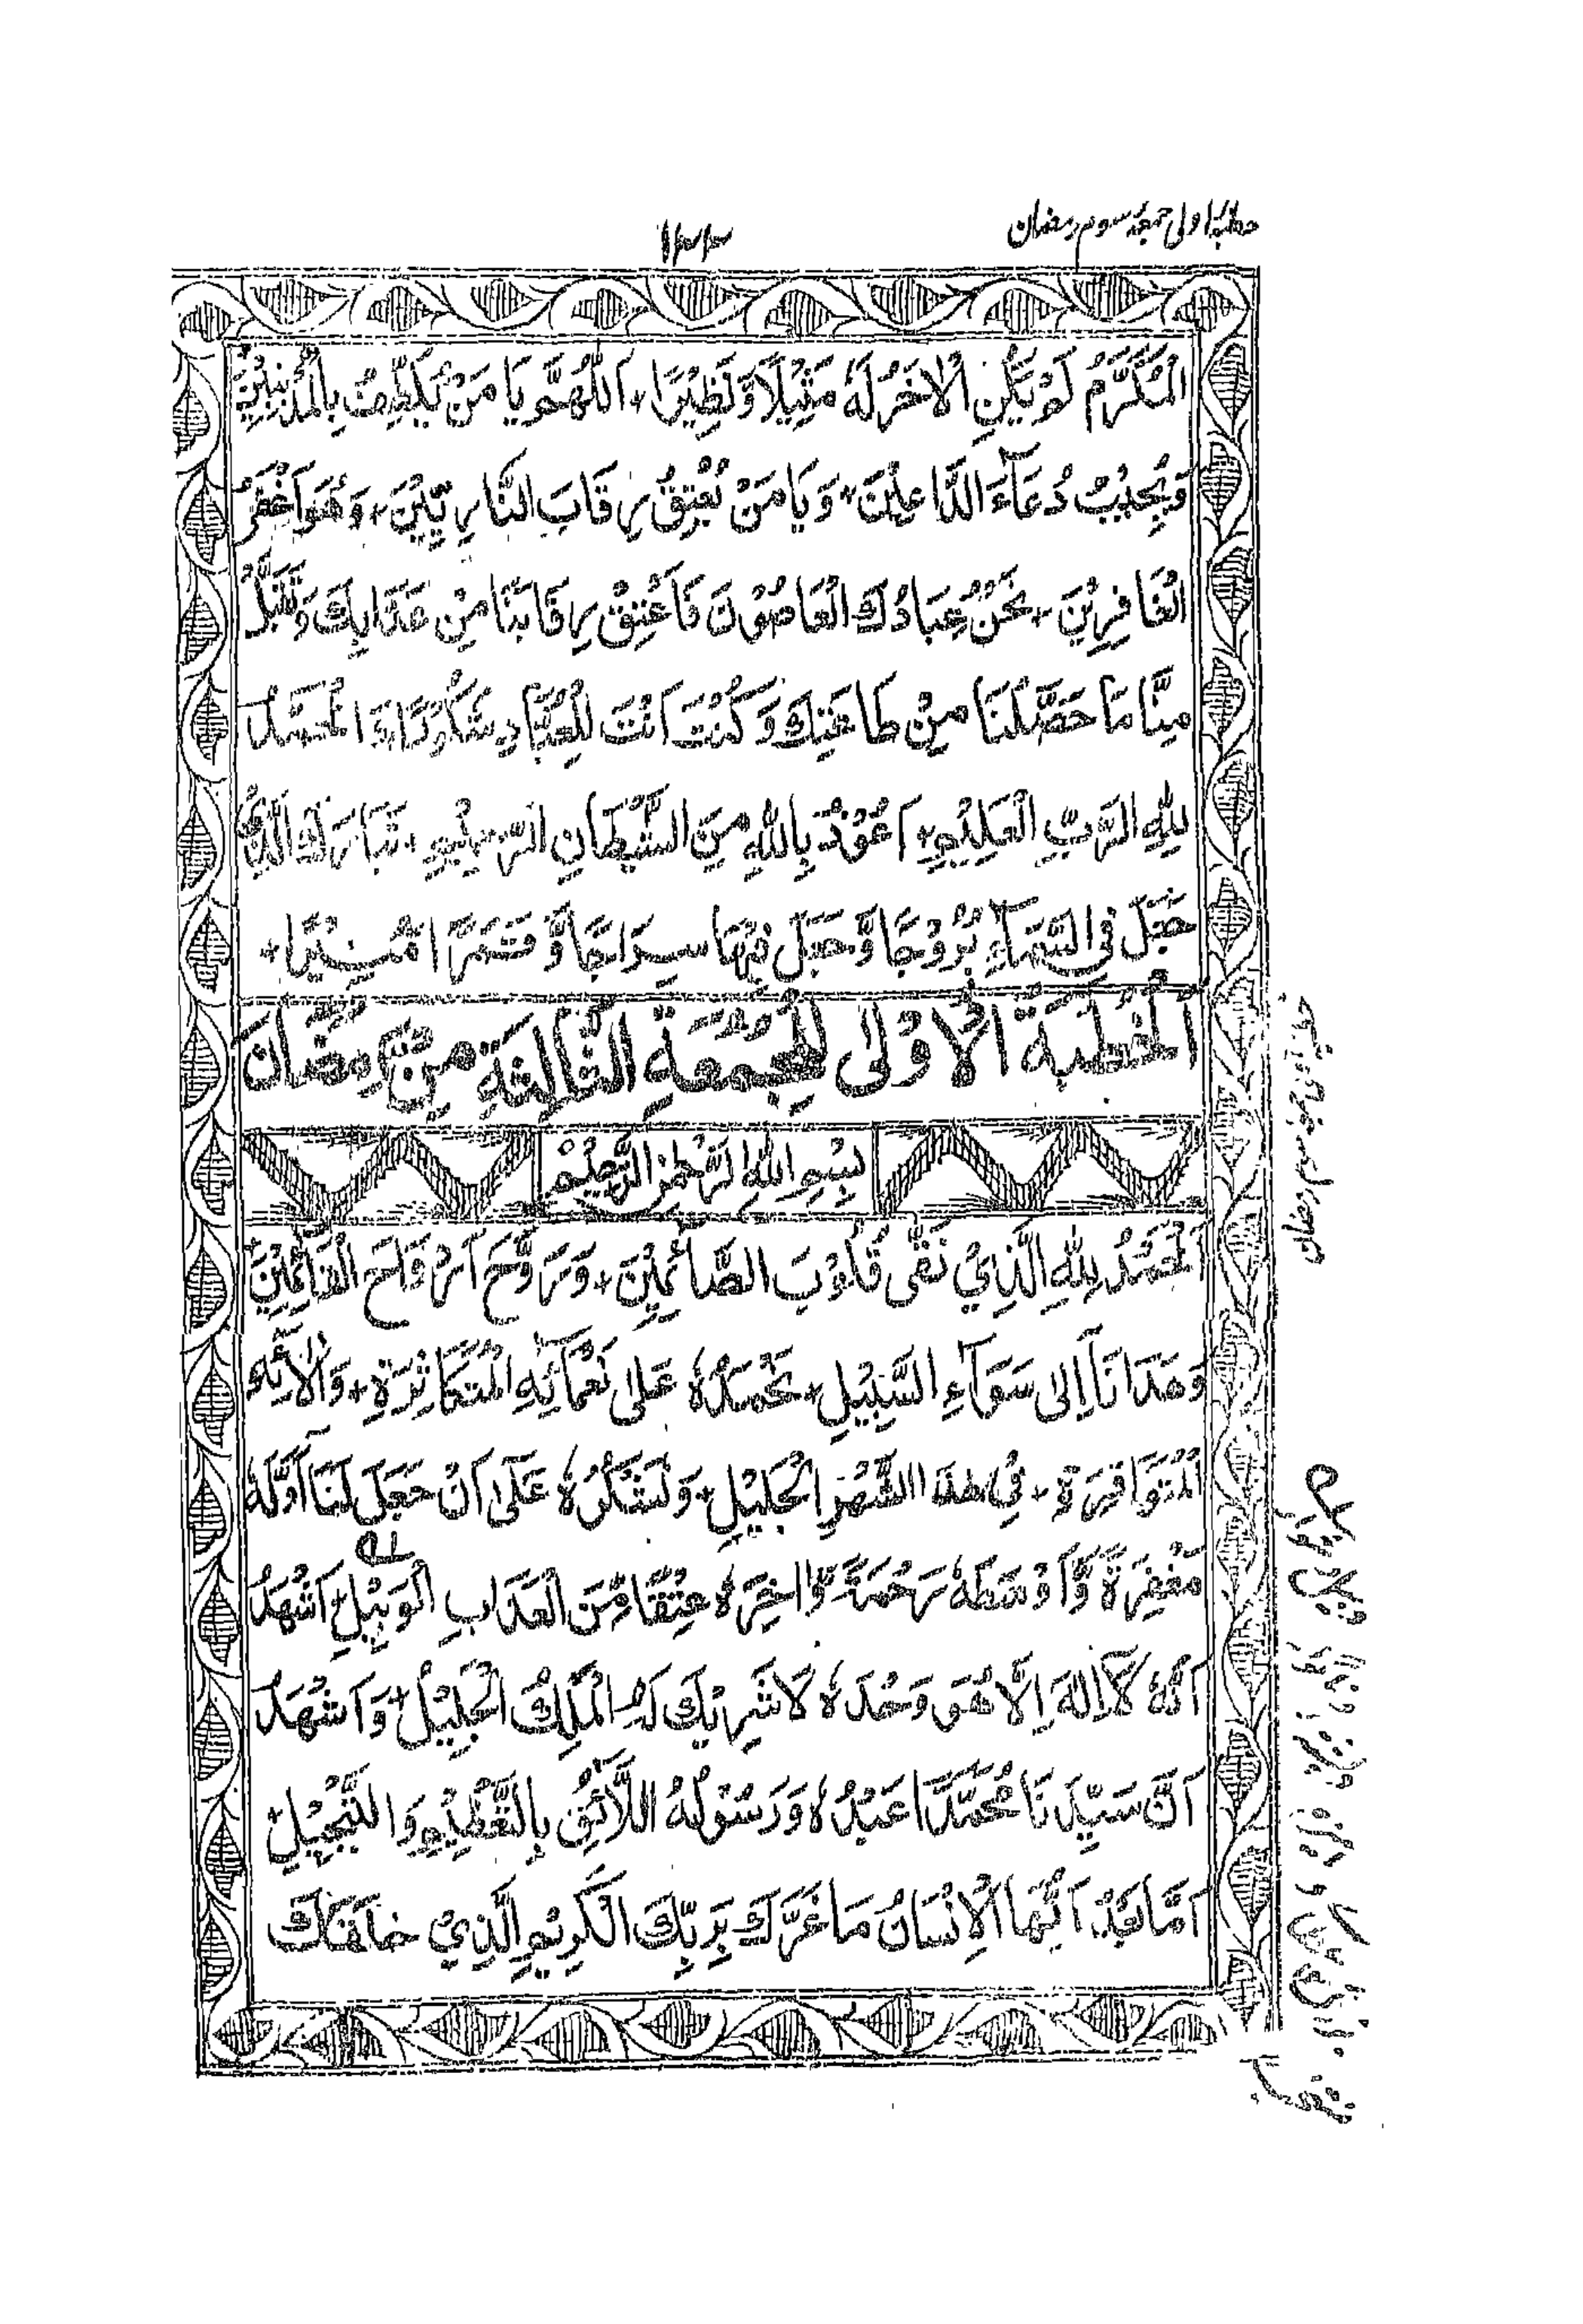 خطبۂ اولی جمعۂ سوم رمضان
۱۴۴
الْمُكَرَّمُ لَمْ يَكُنِ الْاٰخَرُ لَهٗ مَثِيْلًا وَّنَظِيْرًا + اَللّٰهُمَّ يَا مَنْ يَّلْطُفُ بِالْمُذْنِبِيْنَ
وَيُجِيْبُ دُعَآءَ الدَّاعِيْنَ + وَيَا مَنْ يُّعْتِقُ رِقَابَ النَّارِيِّيْنَ + وَهُوَ اَغْفَرُ
الْغَافِرِيْنَ + نَحْنُ عِبَادُكَ الْعَاصُوْنَ فَاَعْتِقْ رِقَابَنَا مِنْ عَذَابِكَ وَتَقَبَّلْ
مِنَّا مَا حَصَّلْنَا مِنْ طَاعَتِكَ وَكُنْتَ اَنْتَ لِلْعِبَادِ شَكُوْرًا + اَلْحَمْدُ
لِلّٰهِ الرَّبِّ الْعَلِيْمِ + اَعُوْذُ بِاللّٰهِ مِنَ الشَّيْطَانِ الرَّجِيْمِ + تَبَارَكَ الَّذِيْ
جَعَلَ فِي السَّمَآءِ بُرُوْجًا وَّجَعَلَ فِيْهَا سِرَاجًا وَّقَمَرًا مُّنِيْرًا +
اَلْخُطْبَةُ الْاُوْلٰى لِلْجُمُعَةِ الثَّالِثَةِ مِنْ رَمَضَانَ
بِسْمِ اللّٰهِ الرَّحْمٰنِ الرَّحِيْمِ
اَلْحَمْدُ لِلّٰهِ الَّذِيْ نَقّٰى قُلُوْبَ الصَّائِمِيْنَ + وَرَوَّحَ اَرْوَاحَ الْقَائِمِيْنَ
وَهَدَانَا اِلٰى سَوَآءِ السَّبِيْلِ + نَحْمَدُهٗ عَلٰى نَعْمَائِهِ الْمُتَكَاثِرَةِ + وَاٰلَائِهِ
الْمُتَوَافِرَةِ + فِيْ هٰذَا الشَّهْرِ الْجَلِيْلِ + وَنَشْكُرُهٗ عَلٰى اَنْ جَعَلَ لَنَا اَوَّلَهٗ
مَغْفِرَةً وَّاَوْسَطَهٗ رَحْمَةً وَّاٰخِرَهٗ عِتْقًا مِّنَ الْعَذَابِ الْوَبِيْلِ اَشْهَدُ
اَنَّهٗ لَآ اِلٰهَ اِلَّا هُوَ وَحْدَهٗ لَا شَرِيْكَ لَهُ الْمَلِكُ الْجَلِيْلُ + وَاَشْهَدُ
اَنَّ سَيِّدَنَا مُحَمَّدًا عَبْدُهٗ وَرَسُوْلُهُ اللَّائِقُ بِالتَّعْظِيْمِ وَالتَّبْجِيْلِ +
اَمَّا بَعْدُ اَيُّهَا الْاِنْسَانُ مَا غَرَّكَ بِرَبِّكَ الْكَرِيْمِ الَّذِيْ خَلَقَكَ
خطبۂ اولی جمعۂ سوم رمضان